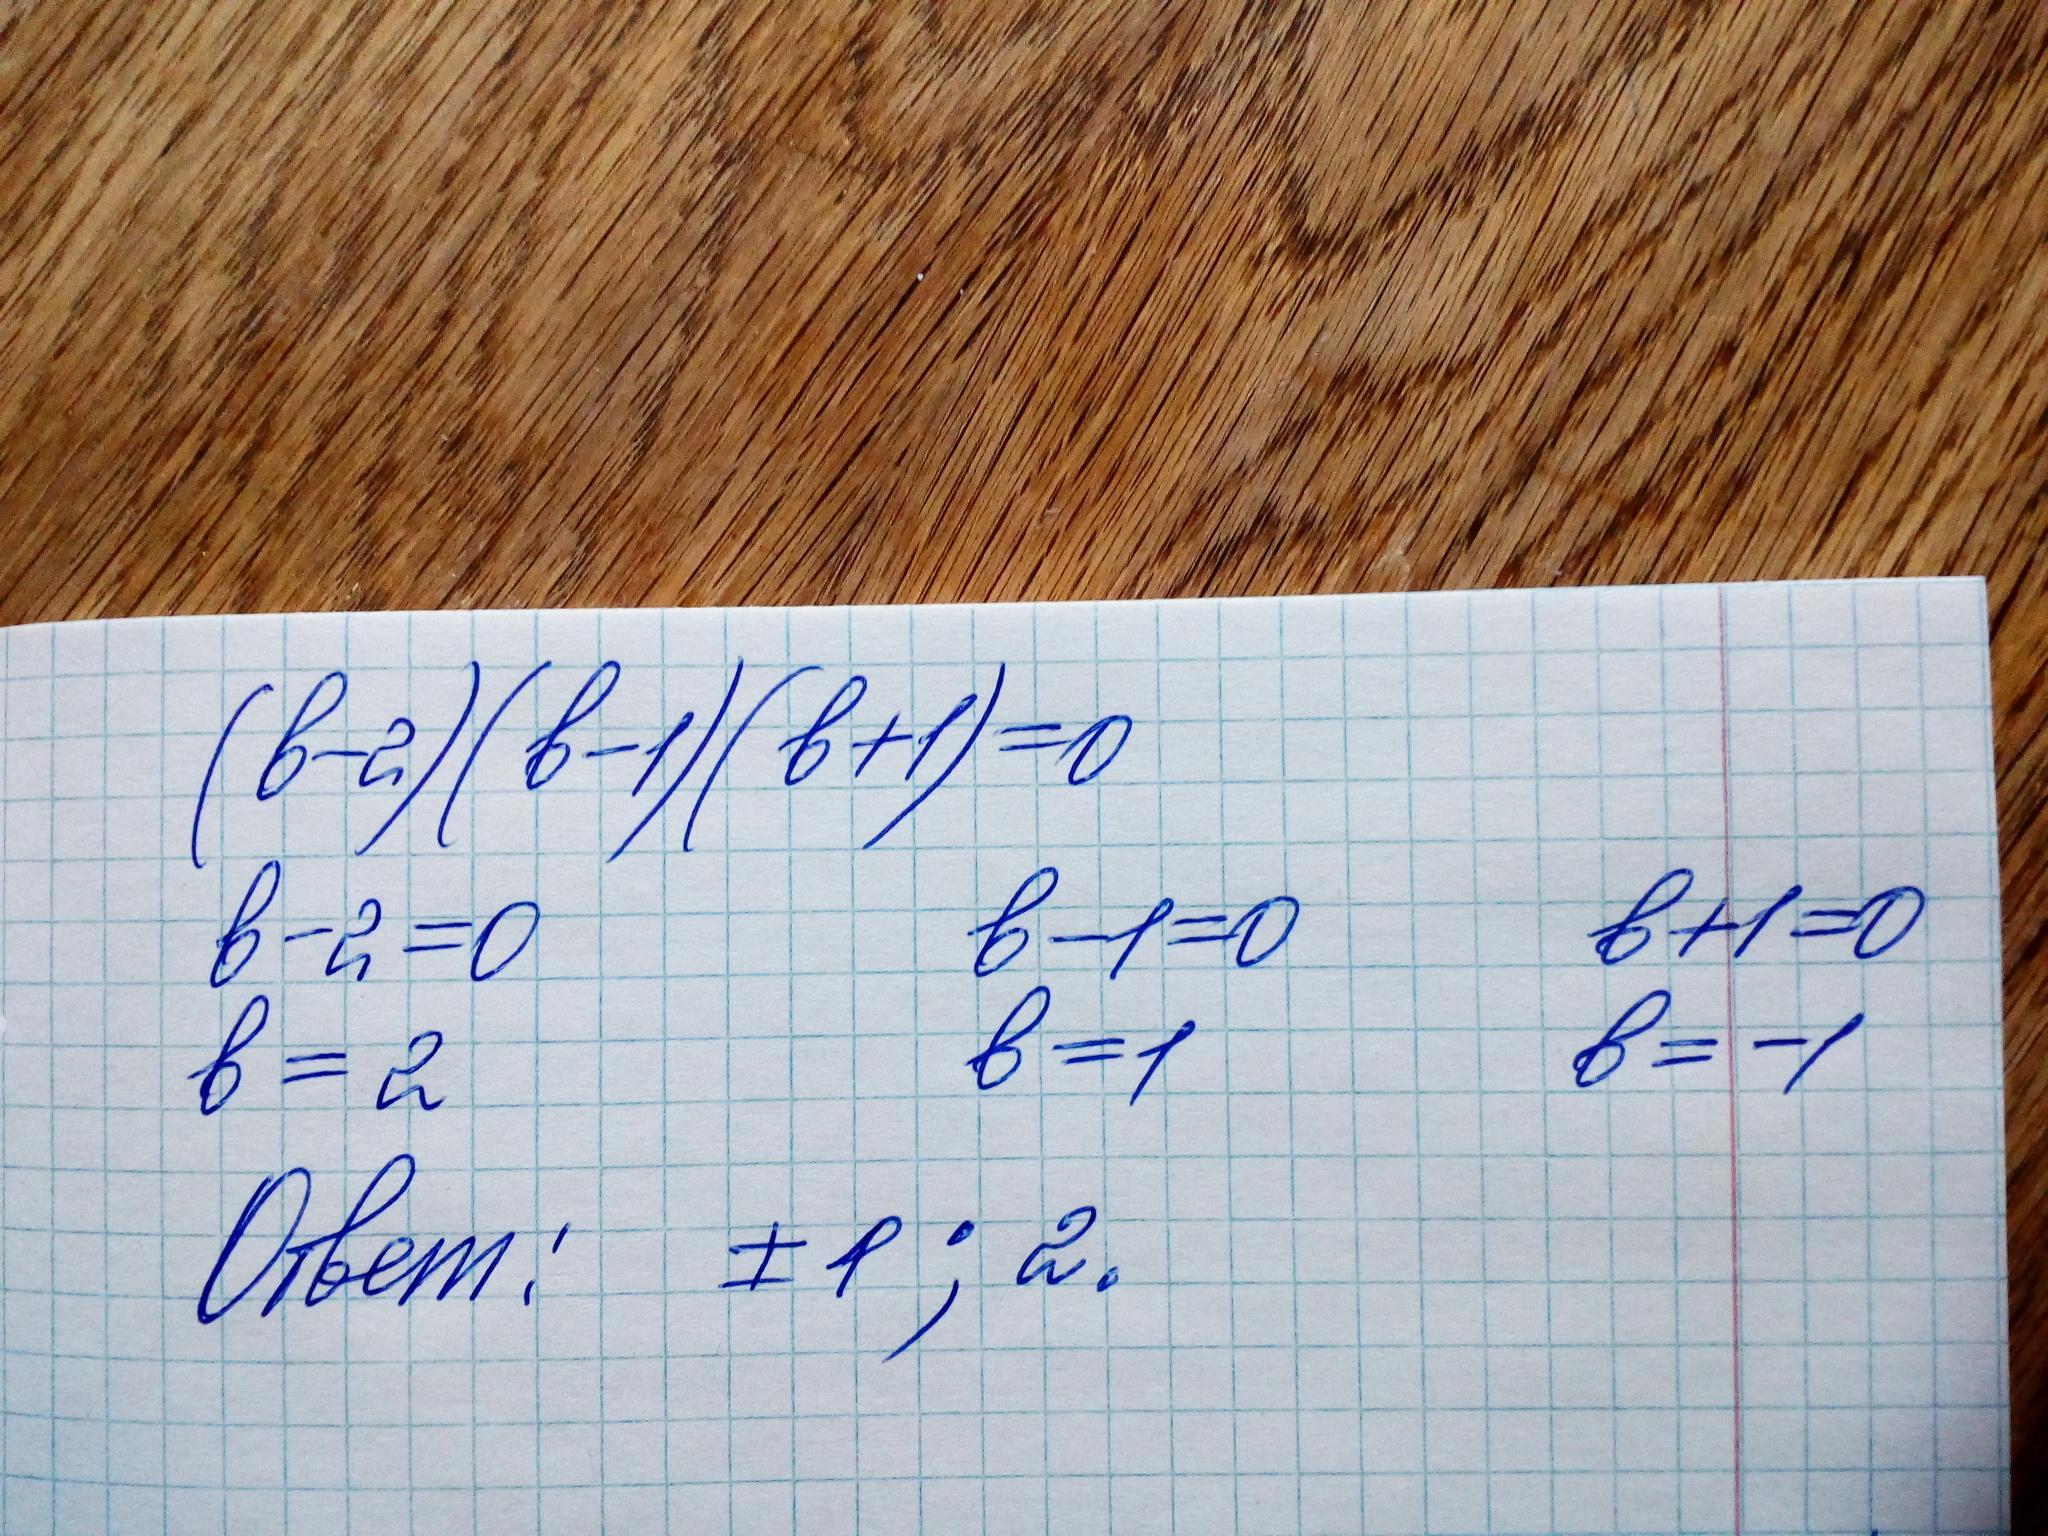 (b-2)(b-1)(b+1)=0
b-2=0 b-1=0 b+1=0
b=2 b=1 b=-1
Ответ: ±1; 2.